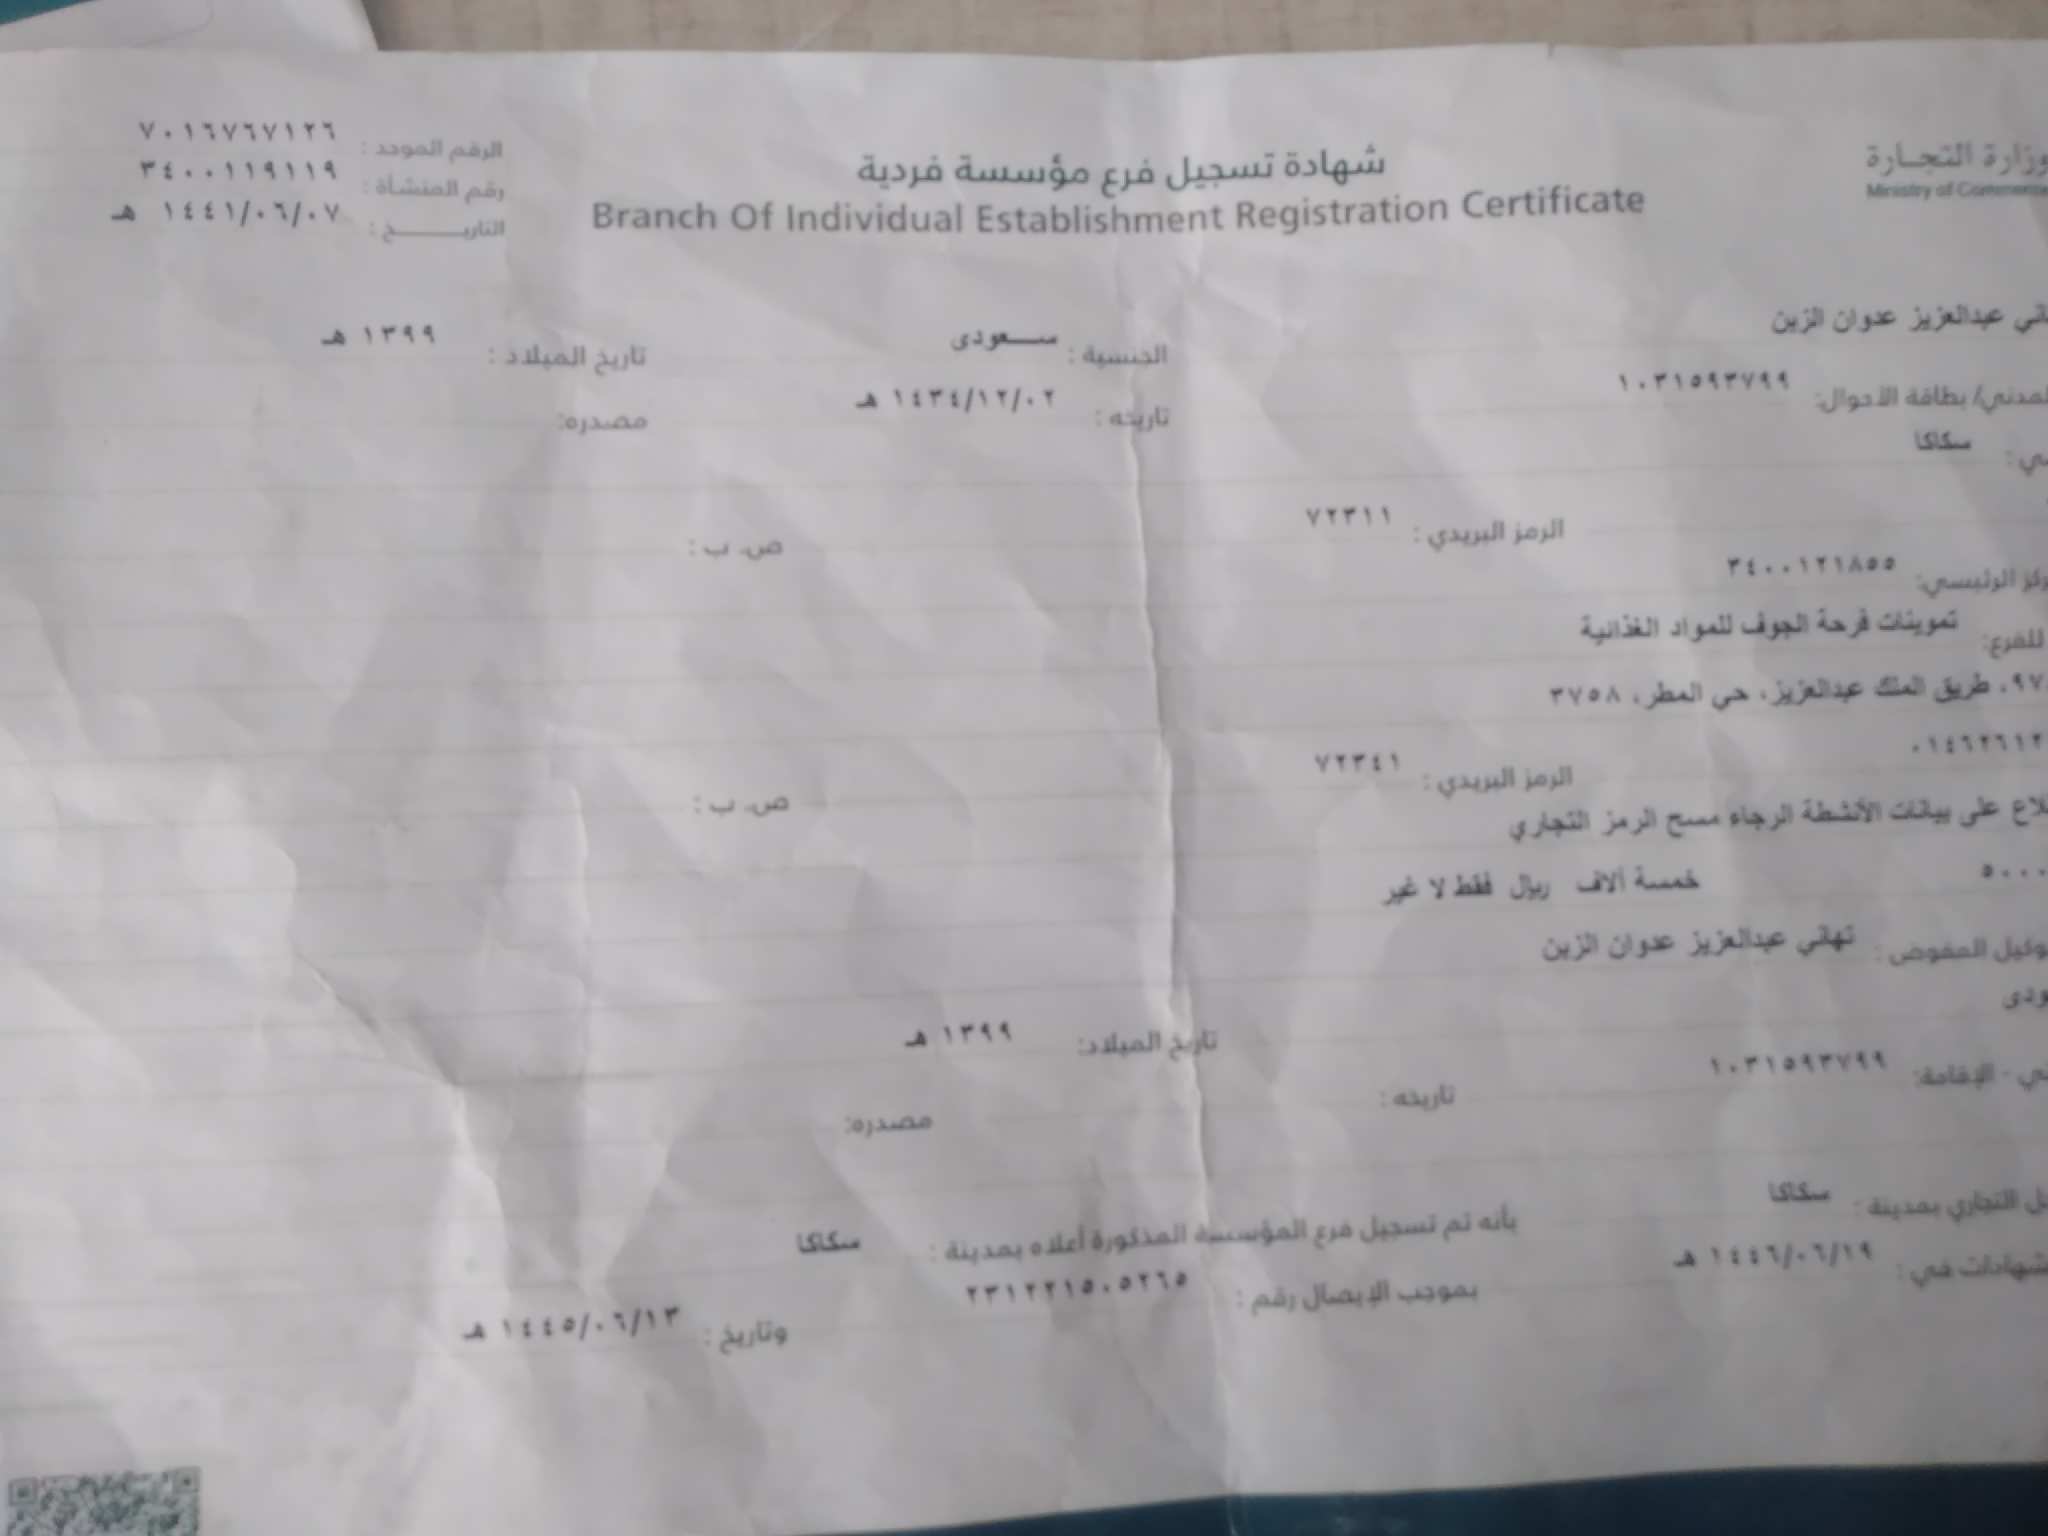 وزارة التجارة
Ministry of Commerce
شهادة تسجيل فرع مؤسسة فردية
Branch Of Individual Establishment Registration Certificate
الرقم الموحد : ٧٠١٦٧٦٧١٢٦
رقم المنشأة : ٣٤٠٠١١٩١١٩
التاريـــــــخ : ١٤٤١/٠٦/٠٧ هـ
عبدالعزيز عدوان الزين
الجنسية : ســـعودى تاريخ الميلاد : ١٣٩٩ هـ
/ بطاقة الأحوال: ١٠٣١٥٩٣٧٩٩ تاريخه : ١٤٣٤/١٢/٠٢ هـ مصدره:
سكاكا
الرمز البريدي : ٧٢٣١١ ص. ب :
الرئيسي: ٣٤٠٠١٢١٨٥٥
للفرع: تموينات فرحة الجوف للمواد الغذائية
طريق الملك عبدالعزيز، حي المطر، ٣٧٥٨
الرمز البريدي : ٧٢٣٤١ ص. ب :
على بيانات الأنشطة الرجاء مسح الرمز التجاري
خمسة آلاف ريال فقط لا غير
المفوض : تهاني عبدالعزيز عدوان الزين
تاريخ الميلاد: ١٣٩٩ هـ
- الإقامة: ١٠٣١٥٩٣٧٩٩ تاريخه : مصدره:
التجاري بمدينة : سكاكا بأنه تم تسجيل فرع المؤسسة المذكورة أعلاه بمدينة : سكاكا
في : ١٤٤٦/٠٦/١٩ هـ بموجب الإيصال رقم : ٢٣١٢٢١٥٠٥٢٦٥ وتاريخ : ١٤٤٥/٠٦/١٣ هـ